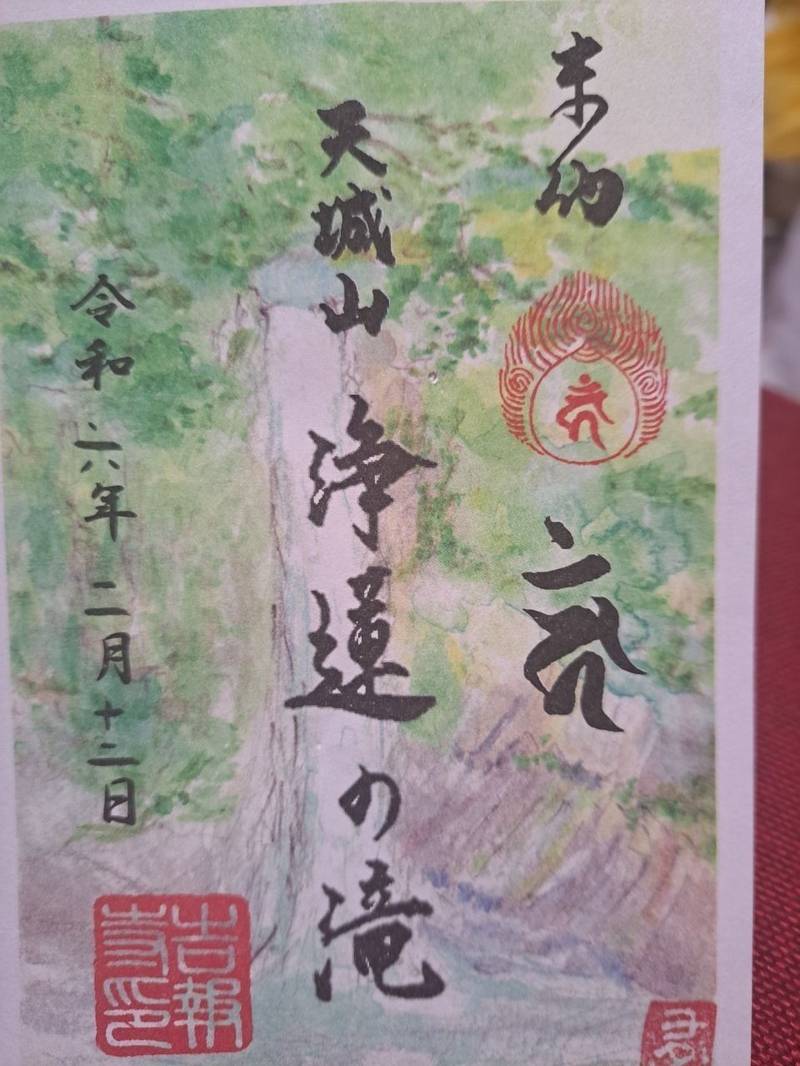 奉納
天城山 浄蓮の滝
令和六年 二月十二日
吉報
寺印